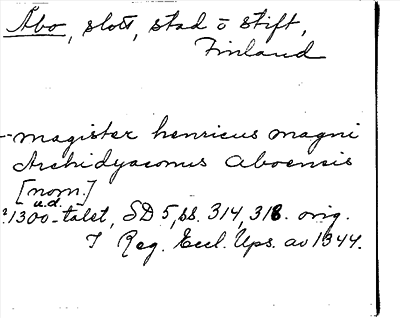 Åbo, slott, stad o stift,
Finland
- magister henricus magni
Archidyaconus aboensis
[nom.]
u.d.
1300-talet, SD 5, ss. 314, 318. orig.
I Reg. Eccl. Ups. av 1344.